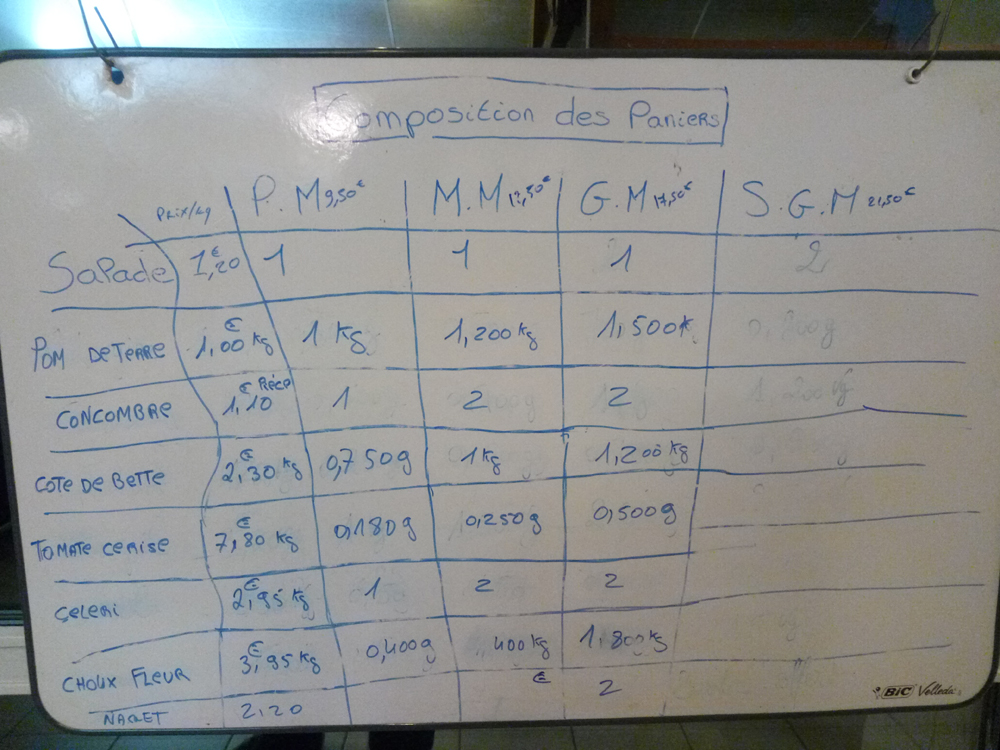 Composition des Paniers
Prix/kg P.M 9,50€ M.M 12,50€ G.M 17,50€ S.G.M 21,50€
Salade 1,20€ 1 1 1 2
POM DE TERRE 1,00€ kg 1 kg 1,200 kg 1,500k
CONCOMBRE 1,10€ Piéce 1 2 2
COTE DE BETTE 2,30€ kg 0,750g 1kg 1,200kg
TOMATE CERISE 7,80€ kg 0,180g 0,250g 0,500g
CELERI 2,95€ kg 1 2 2
CHOUX FLEUR 3,95€ kg 0,400g 400kg 1,800kg
NAVET 2,20 € 2
BIC Velleda